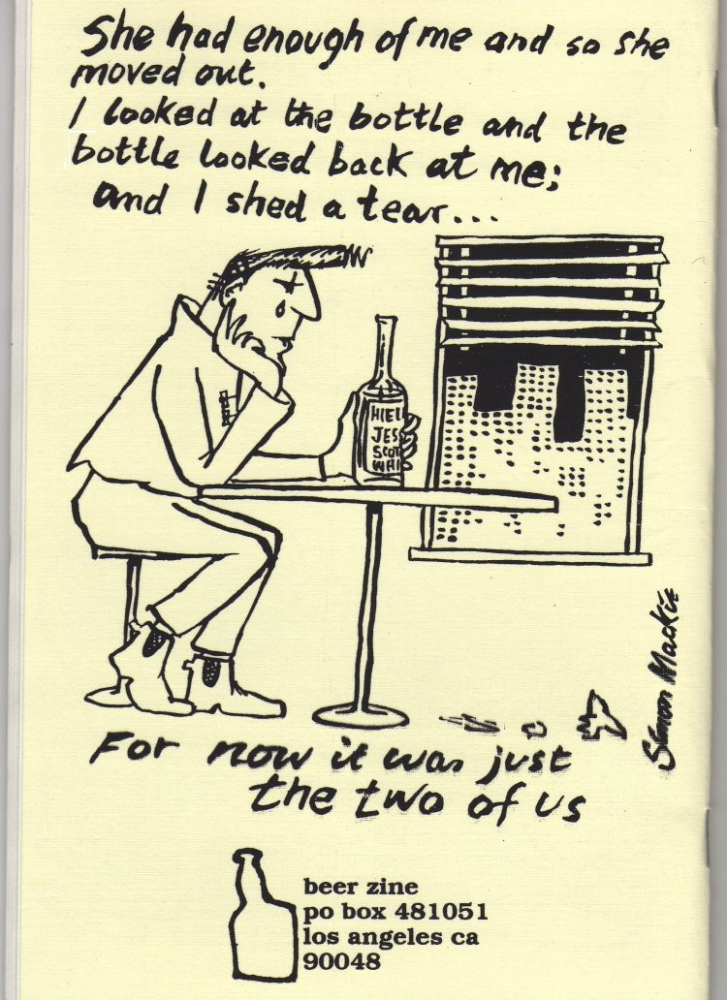 She had enough of me and so she
moved out.
I looked at the bottle and the
bottle looked back at me;
and I shed a tear...
HIEL
JES
SCOT
WHI
Simon Mackie
For now it was just
the two of us
beer zine
po box 481051
los angeles ca
90048